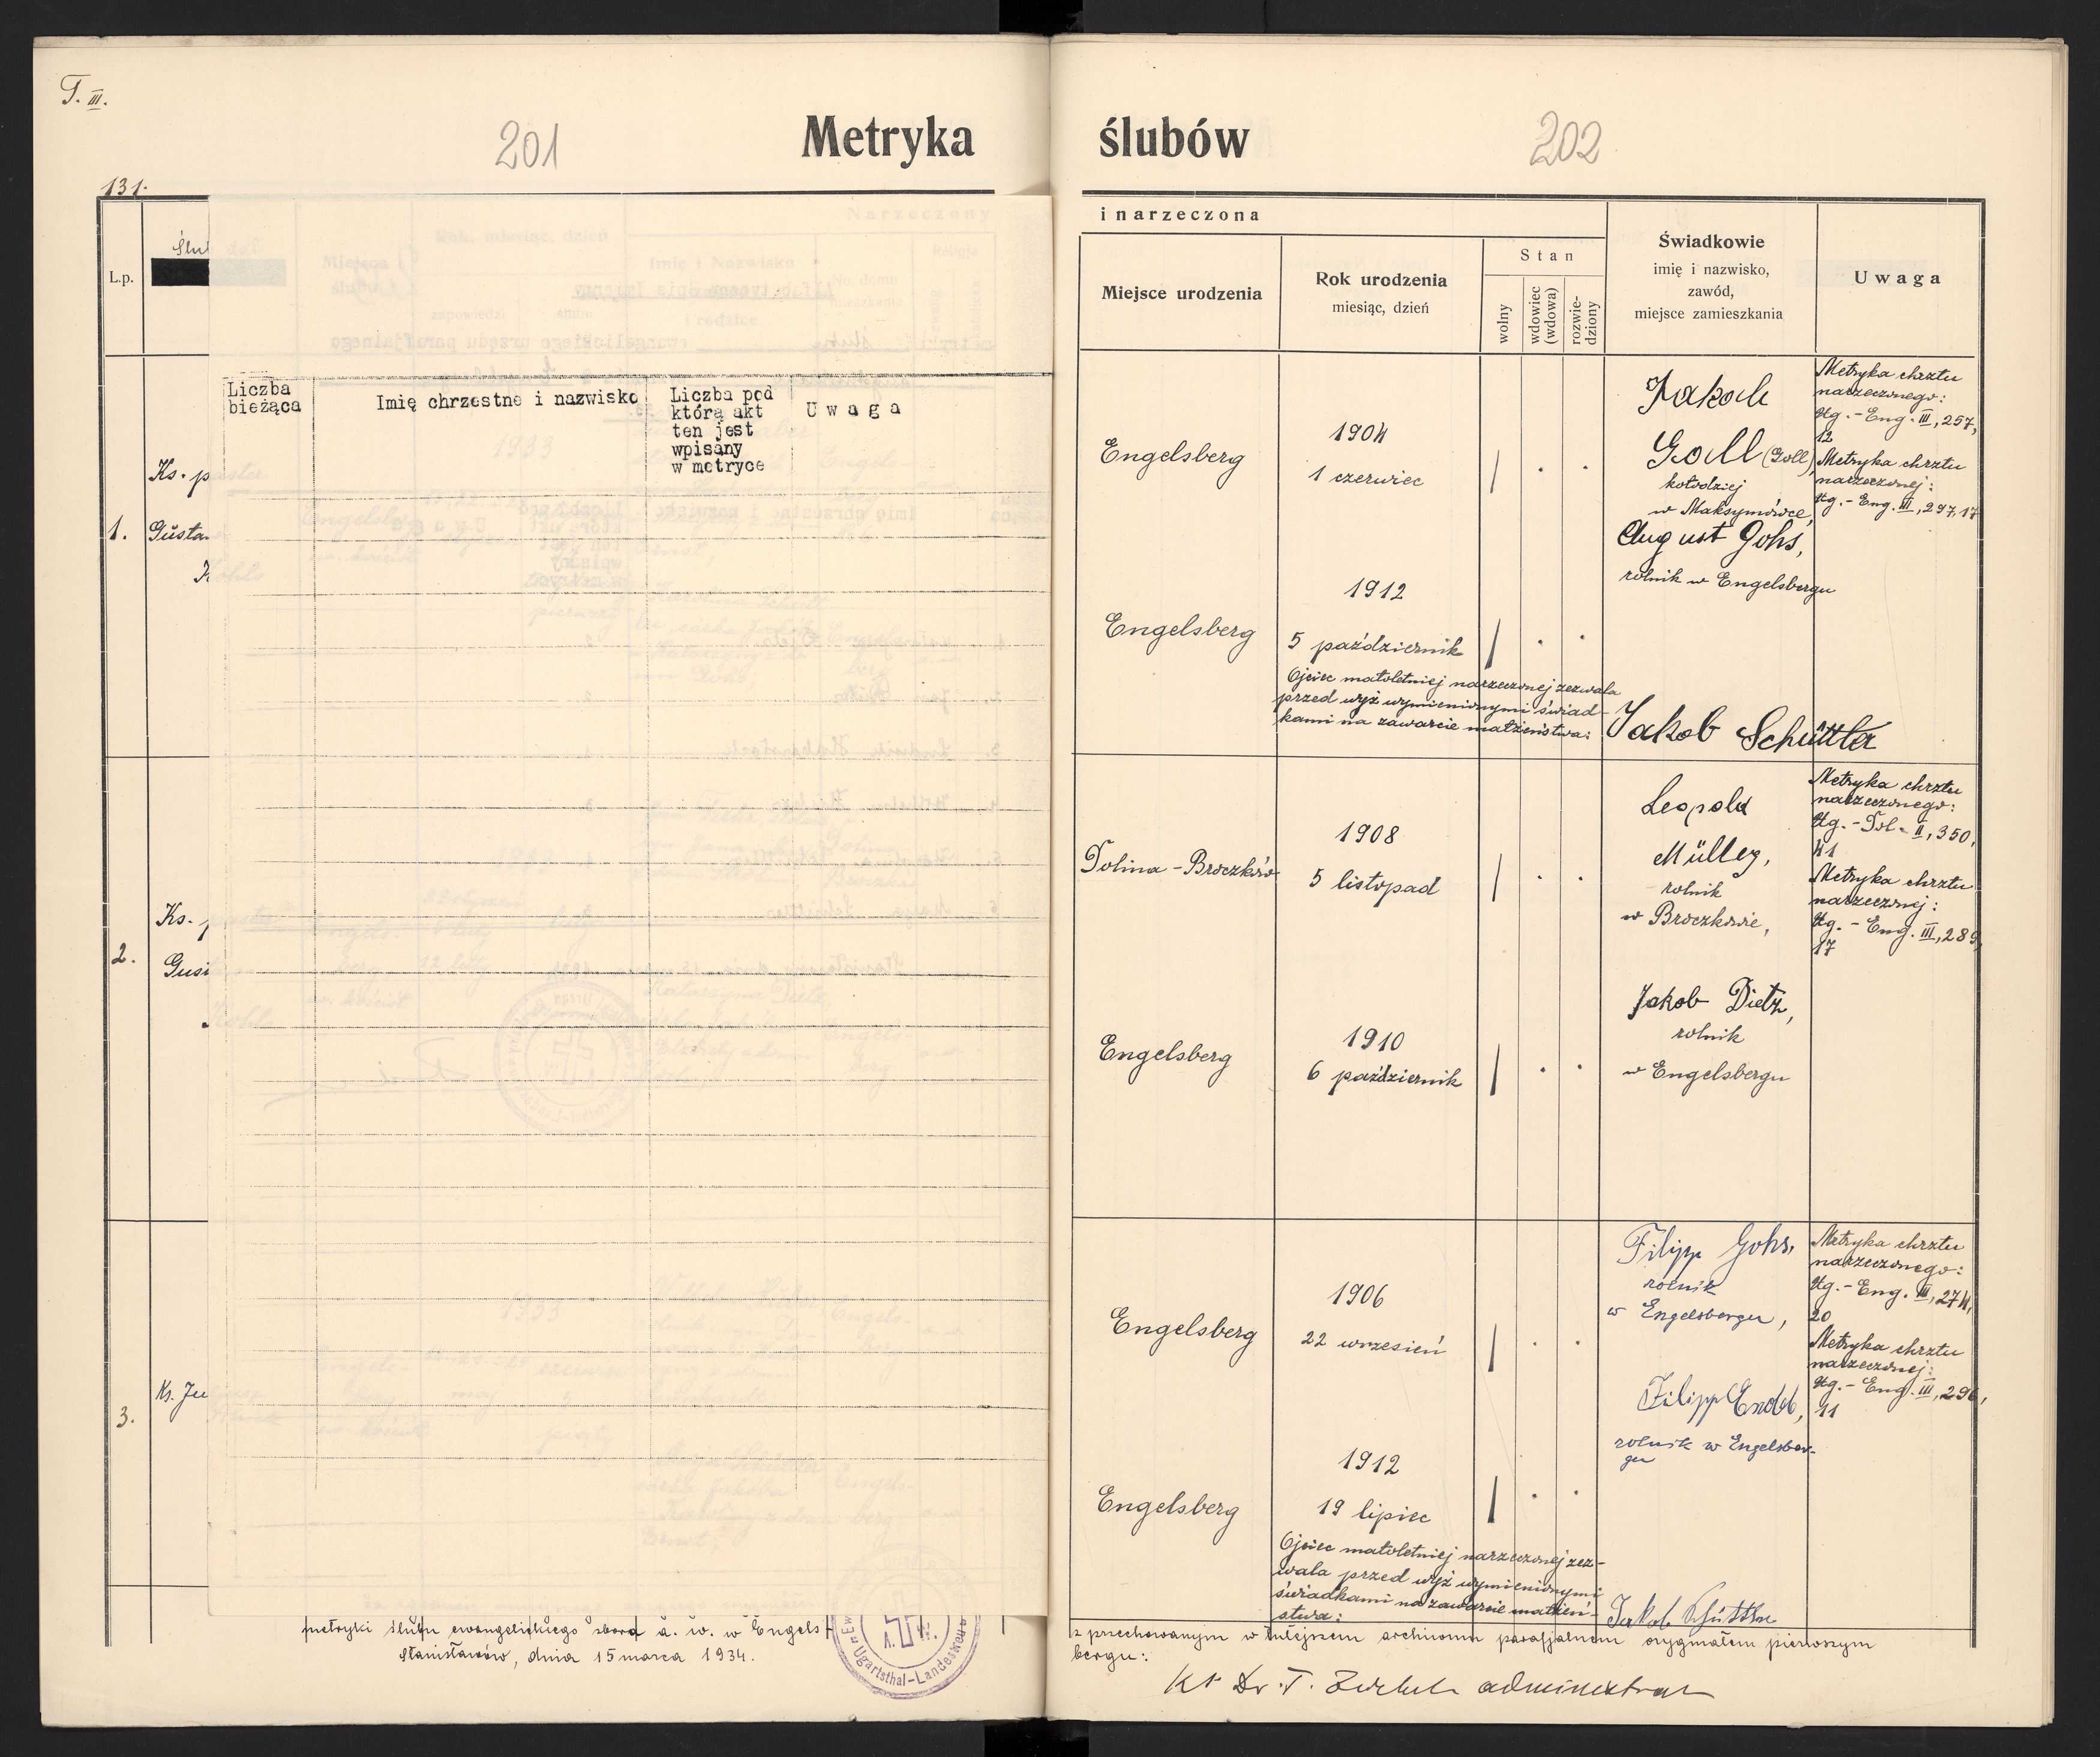 T. III.
201
Metryka
131.
L.p.
Ślu
Liczba
bieżąca
Imię chrzestne i nazwisko
Liczba pod
którą akt
ten jest
wpisany
w metryce
U w a g a
1.
Ks. p
Gusta
2.
Ks. p
Gus
3.
Ks. Ju
metryki ślubu ewangelickiego zboru a. w. w Engels-
Stanisławów, dnia 15 marca 1934.
Ugartsthal-Landeskron
A. W.
ślubów
202
i narzeczona
Miejsce urodzenia
Rok urodzenia
miesiąc, dzień
Stan
wolny
wdowiec
(wdowa)
rozwie-
dziony
Świadkowie
imię i nazwisko,
zawód,
miejsce zamieszkania
Uwaga
Engelsberg
1904
1 czerwiec
Jakob
Goll (Goll)
kołodziej
w Maksymówce,
August Gohs,
rolnik w Engelsbergu
Metryka chrztu
narzeczonego:
Ug.-Eng. III, 257,
12
Metryka chrztu
narzeczonej:
Ug.-Eng. III, 297, 17
Engelsberg
1912
5 październik
Ojciec małoletniej narzeczonej zezwala
przed wyż wymienionymi świad-
kami na zawarcie małżeństwa:
Jakob Schüttler
Dolina-Broczków
1908
5 listopad
Leopold
Müller,
rolnik
w Broczkowie,
Metryka chrztu
narzeczonego:
Ug.-Dol. II, 350,
41
Metryka chrztu
narzeczonej:
Ug.-Eng. III, 289,
17
Engelsberg
1910
6 październik
Jakob Dietz,
rolnik
w Engelsbergu
Engelsberg
1906
22 wrzesień
Filipp Gohs,
rolnik
w Engelsbergu,
Metryka chrztu
narzeczonego:
Ug.-Eng. III, 274,
20
Metryka chrztu
narzeczonej:
Ug.-Eng. III, 296,
11
Filipp
rolnik w Engelsber-
gu
Engelsberg
1912
19 lipiec
Ojciec małoletniej narzeczonej zez-
wala przed wyż wymienionymi
świadkami na zawarcie małżeń-
stwa:
Jakob Schüttler
z przechowanym w tutejszem archiwum parafjalnem oryginałem pierwszym
bergu:
Ks. Dr. T. administrator